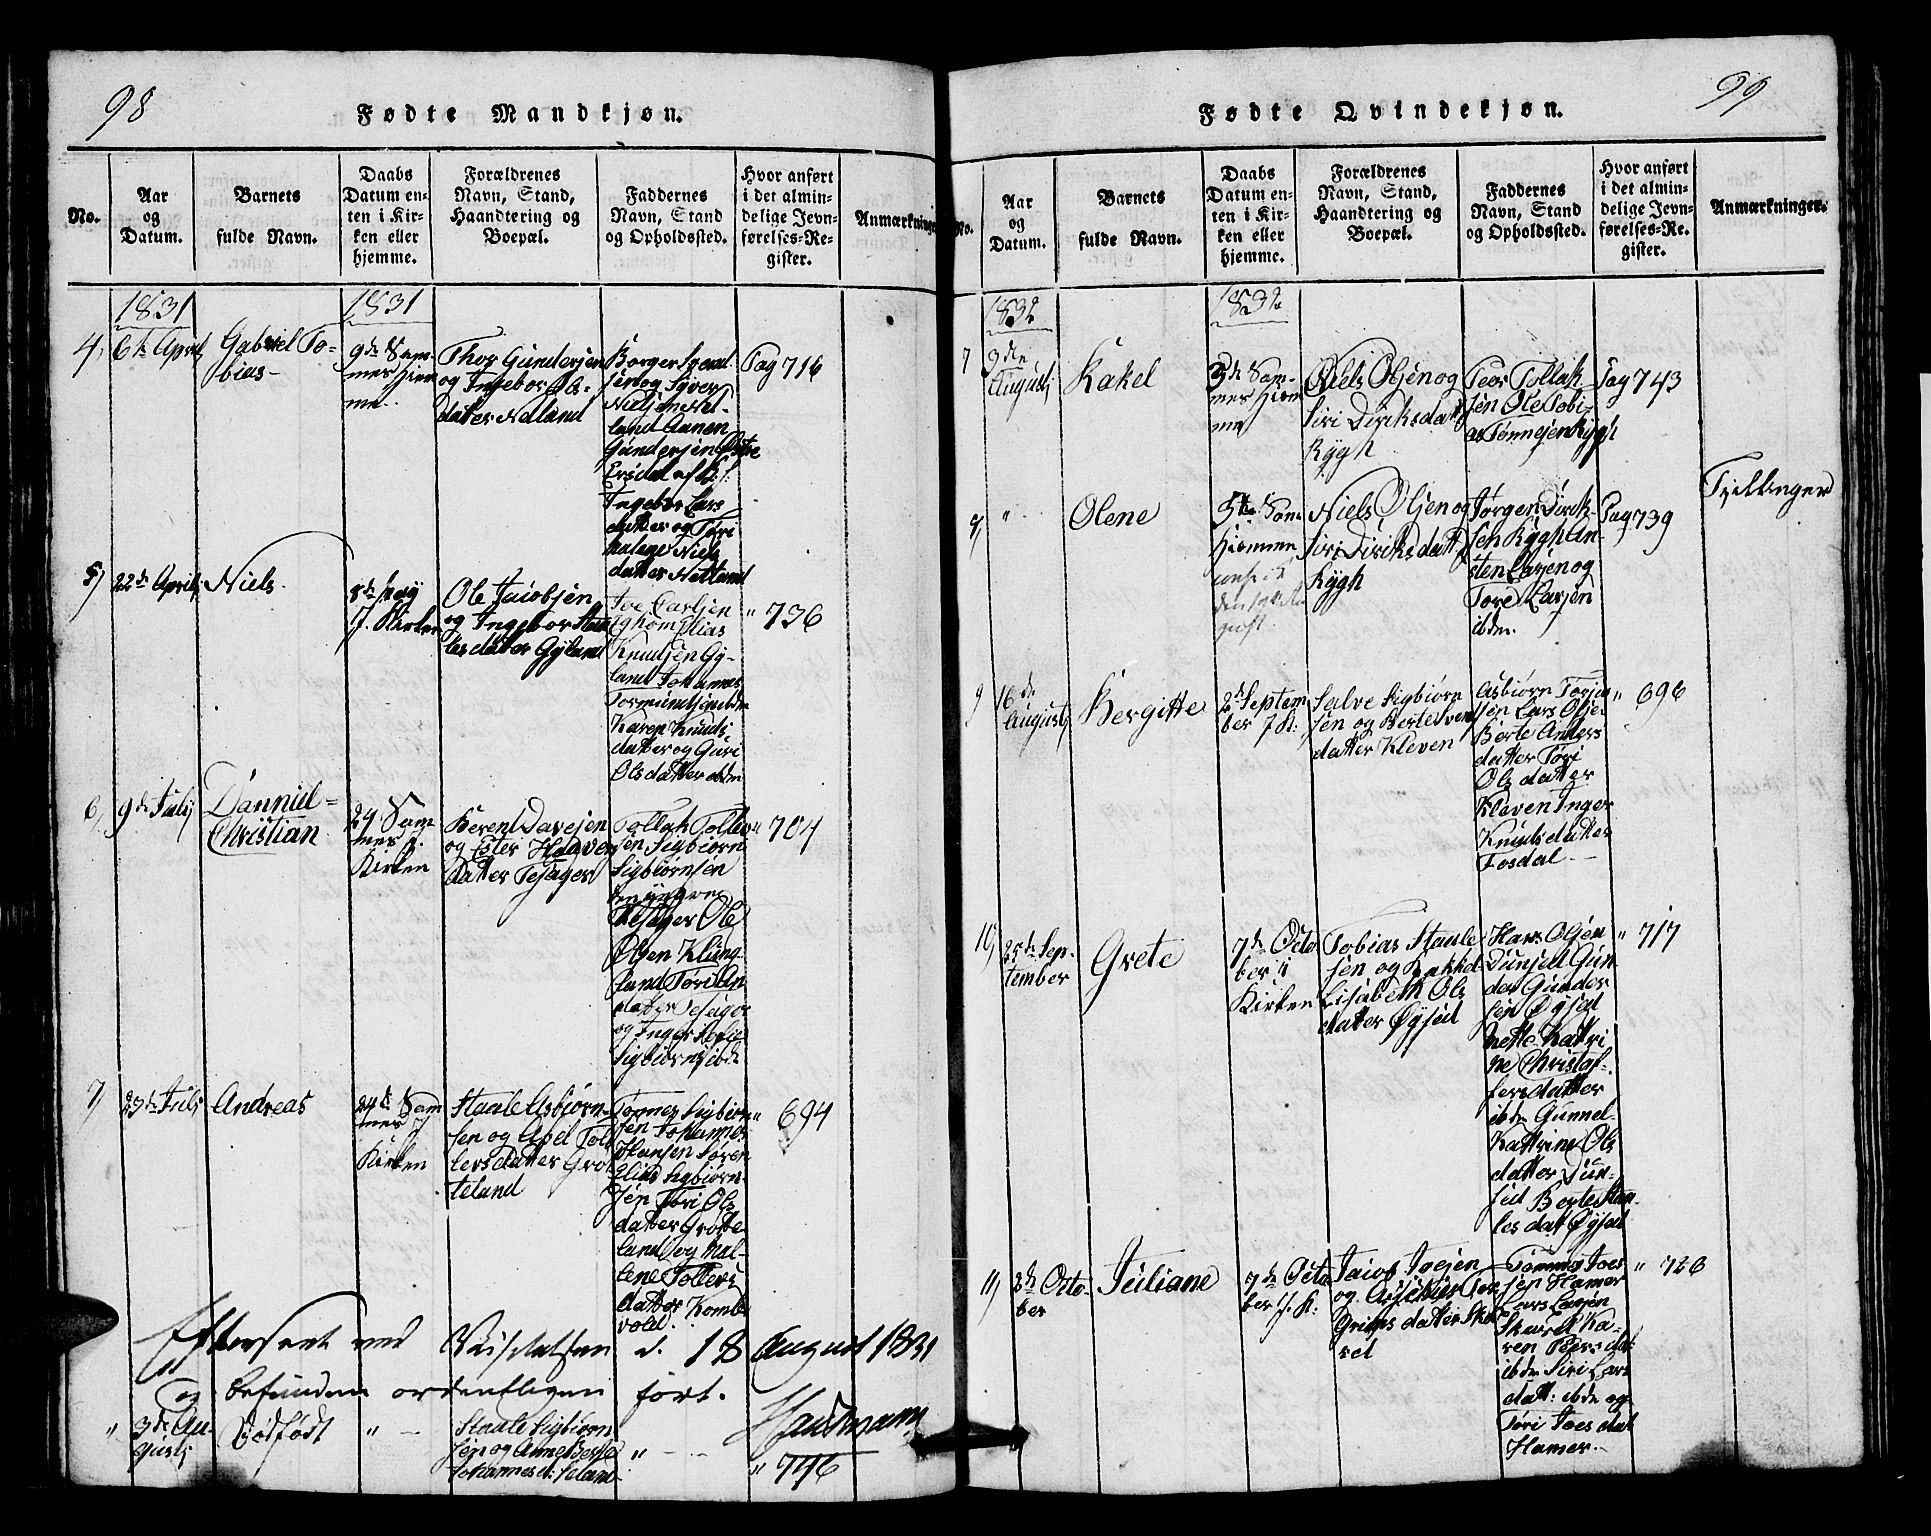 98
Fødte Mandkjøn.
No.
Aar
og
Datum.
Barnets
fulde Navn.
Daabs
Datum en-
ten i Kir-
ken eller
hjemme.
Forældrenes
Navn, Stand,
Haandtering og
Boepæl.
Faddernes
Navn, Stand
og Opholdssted.
Hvor anført
i det almin-
delige Jevn-
førelses-Re-
gister.
Anmærkninger.
1831
1831
4,
6te April
Gabriel To-
bias
9de Som-
mer Hiem
me.
Thor Gundersen
og Ingebor Ols-
datter Nedland
Borger Svend
sen og Syver
Nielsen Net-
land Aanen
Gundersen Østre
Ersdal af
Ingebor Lars
datter og Tøri
Malene Niels
datter Netland
Pag 716
5)
22de April
Niels
8de May
J. Kirken
Ole Jacobsen
og Ingebor Staa
lesdatter Gyland
Joe Carlsen
Elias
Knudsen Gy-
land Johannes
Tormundsen ibdm
Karen Knuds
datter og Guri
Olsdatter ibdm
" 736
6,
9de July
Danniel
Christian
24 Som
mer J.
Kirken
Berent Davesen
og Ester Haaver
datter Tesager
Tollak Tollev
sen Sigbiørn
Sigbiørnsen
den yngre
Tesager Ole
Olsen Klung-
land Tøri An
datter Tesager
og Inger Sofie
Sigbiørns ibdm
" 704
7)
23de July
Andreas
24de Som
mer J
Kirken
Staale Asbiørn-
sen og Abel Tol
levsdatter Grøt
teland
Tønnes Sigbiørn
sen Johannes
Hansen Søren
Elias Sigbiørn-
sen Tøri Ols
datter Grøtte-
land og Mal-
lene Tollevs
datter Komb
vold.
" 694
Efterseet ved Visitatsen d. 18 August 1831
og befunden ordentligen ført.
Hausmann
"
3de Au-
gusti
Dødfødt
"
Staale Sigbiørn
sen og Anne Berthe
Johannesd: Seland
"
" 746
99
Fødte Qvindekjøn.
No.
Aar
og
Datum.
Barnets
fulde Navn.
Daabs
Datum en-
ten i Kir-
ken eller
hjemme.
Forældrenes
Navn, Stand,
Haandtering og
Boepæl.
Faddernes
Navn, Stand
og Opholdssted.
Hvor anført
i det almin-
delige Jevn-
førelses-Re-
gister.
Anmærkninger.
1832
1832
7
3die
Augusti
Rakel
3de Som-
mer Hiem
me
Niels Olsen og
Siri Dirksdatt
Rygh
Peer Tollak-
sen Ole Tobi-
as Tønnesen Rygh
Pag 743
"
Olene
Som
Hiemme
gust.
Niels Olsen og
Siri Diriksdatt
Rygh
Jørgen Dirik-
sen Rygh An-
sten Larsen og
Tore Larsen
ibdm.
Pag 739
Tvillinger
9
16de
Augusti
Bergitte
2de Septem
ber J K:
Salve Sigbiørn
sen og Berte Svens
datter Kleven
Asbiørn Torjus
sen Lars Olsen
Berte Anders
datter Tøri
Olsdatter
Kleven Inger
Knudsdatter
Fosdal
" 696
10)
25de Sep-
tember
Grete
7de Octo
ber i
Kirken
Tobias Staale
sen og
Lisabeth Ols
datter Øysæd
Hans Olsen
Dunsæd Gun
der Gunder
sen Øysæd
Mette Katri
ne Christof-
fersdatter
ibdm Gunnel-
Katrine Ols
datter Dun-
sæd Berte Staa-
lesdat Øysæd
" 717
11)
2de Octo-
ber
Juliane
7de Octo
ber J. K:
Jacob Joesen
og
Grimsdatter Ska
ret
Tønnes Joes
sen Hamer
Lars Larsen
Skaret Ka-
ren Peersdat:
ibdm Siri Lars
datt: ibdm og
Tøri Joesdat
Hamer.
" 726